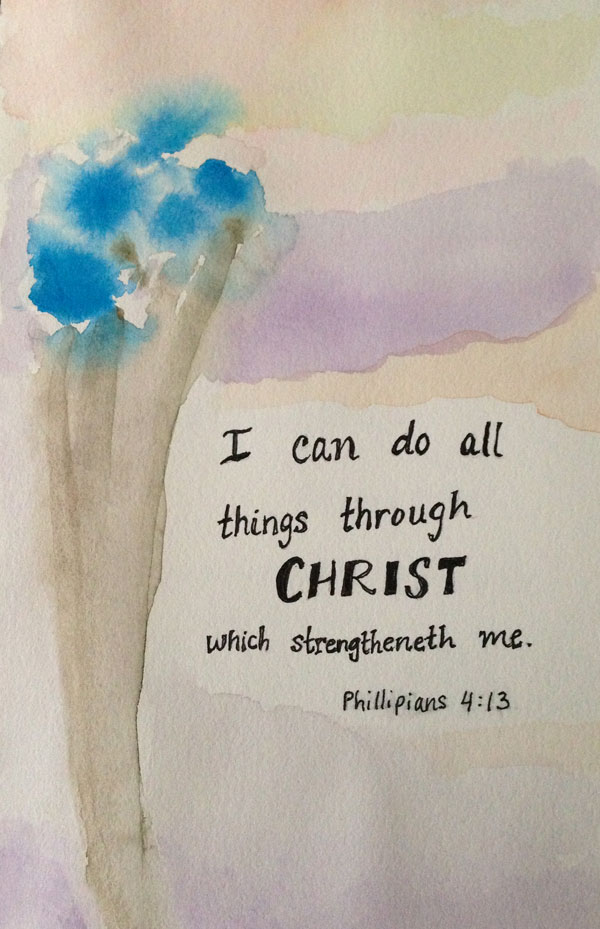 I can do all
things through
CHRIST
which strengtheneth me.
Phillipians 4:13